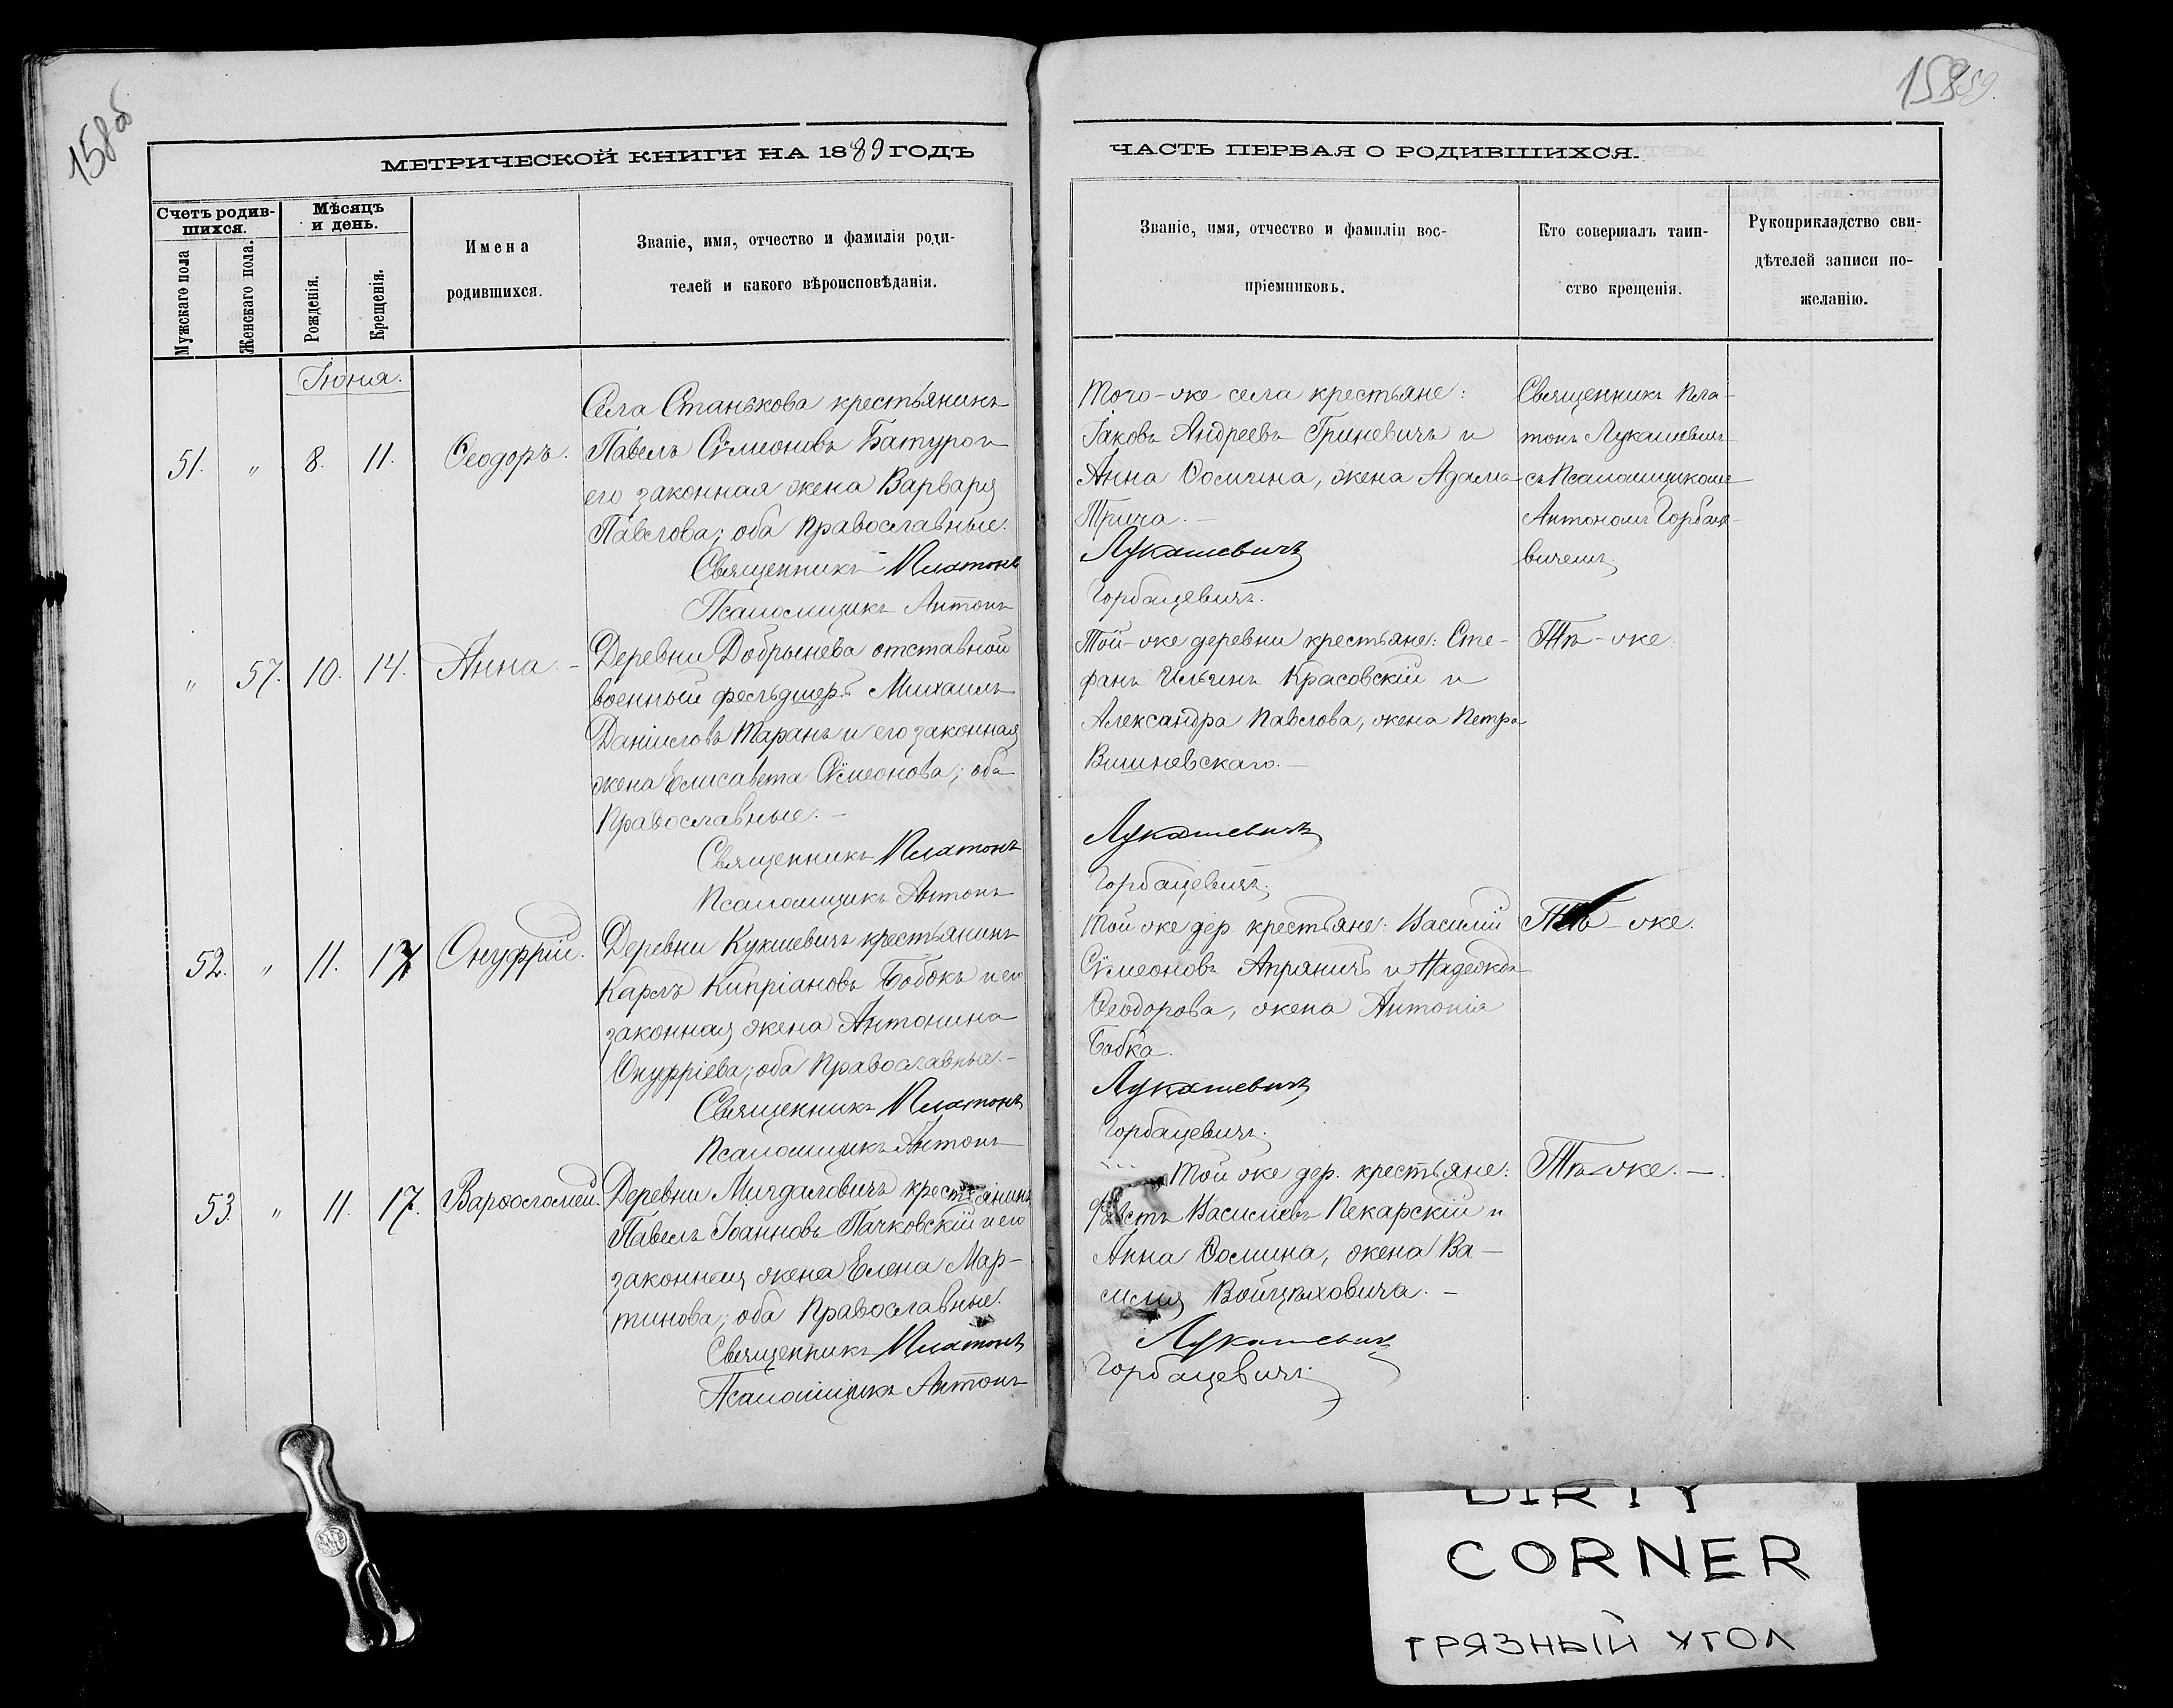 158об
158 59.
МЕТРИЧЕСКОЙ КНИГИ НА 1889 ГОДЪ
Счетъ родив-
шихся.
Мѣсяцъ
и день.
Мужскаго пола
Женскаго пола.
Рожденія.
Крещенія.
Имена
родившихся.
Званіе, имя, отчество и фамилія роди-
телей и какого вѣроисповѣданія.
Іюня.
51. " 8. 11. Ѳеодоръ.
Села Станькова крестьянинъ
Павелъ Сѵмеоновъ Батура и
его законная жена Варвара
Павлова; оба православные.
Священникъ Платонъ
Псаломщикъ Антонъ
" 57. 10. 14. Анна. –
Деревни Добрынева отставной
военный фельдшеръ Михаилъ
Даніиловъ Таранъ и его законная
жена Елисавета Сѵмеонова; оба
православные. –
Священникъ Платонъ
Псаломщикъ Антонъ
52. " 11. 17 Онуфрій.
Деревни Кукшевичъ крестьянинъ
Карлъ Кипріановъ Бобокъ и его
законная жена Антонина
Онуфріева; оба православные. –
Священникъ Платонъ
Псаломщикъ Антонъ
53. " 11. 17. Варѳоломей.
Деревни Мигдаловичъ крестьянинъ
Павелъ Іоанновъ Пачковскій и его
законная жена Елена Мар-
тинова; оба православные.
Священникъ Платонъ
Псаломщикъ Антонъ
ЧАСТЬ ПЕРВАЯ О РОДИВШИХСЯ.
Званіе, имя, отчество и фамиліи вос-
пріемниковъ.
Кто совершалъ таин-
ство крещенія.
Рукоприкладство сви-
дѣтелей записи по-
желанію.
Того-же села крестьяне:
Іаковъ Андреевъ Гриневичъ и
Анна Ѳомина, жена Адама
Трича. –
Лукашевичъ
Горбацевичъ.
Священникъ Пла-
тонъ Лукашевичъ
съ Псаломщикомъ
Антономъ Горбаце-
вичемъ
Той-же деревни крестьяне: Сте-
фанъ Ильинъ Красовскій и
Александра Павлова, жена Петра
Вишневскаго. –
Лукашевичъ
Горбацевичъ.
Тѣ-же.
Той же дер. крестьяне: Василій
Сѵмеоновъ Апраничъ и Надежда
Ѳеодорова, жена Антонія
Бобка.
Лукашевичъ
Горбацевичъ.
Тѣ-же.
Той же дер. крестьяне:
Фавстъ Василіевъ Пекарскій и
Анна Ѳомина, жена Ва-
силія Войцѣховича. –
Лукашевичъ
Горбацевичъ.
Тѣ-же. –
DIRTY
CORNER
ГРЯЗНЫЙ УГОЛ